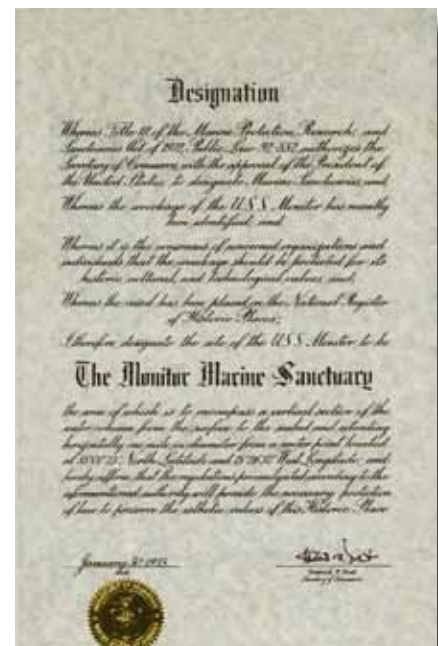 Designation
Whereas Title III of the Marine Protection, Research, and
Sanctuaries Act of 1972, Public Law 92-532, authorizes the
Secretary of Commerce, with the approval of the President of
the United States, to designate Marine Sanctuaries, and
Whereas the wreckage of the U.S.S. Monitor has recently
been identified, and
Whereas it is the consensus of concerned organizations and
individuals that the wreckage should be protected for its
historic, cultural, and technological values, and,
Whereas the wreck has been placed on the National Register
of Historic Places;
I therefore designate the site of the U.S.S. Monitor to be
The Monitor Marine Sanctuary
the area of which is to encompass a vertical section of the
water column from the surface to the seabed and extending
horizontally one mile in diameter from a center point located
at North Latitude and West Longitude, and
hereby affirm that the regulations promulgated according to the
authority will provide the necessary protection
of law to preserve the esthetic values of this Historic Place
January 30 1975
Secretary of Commerce